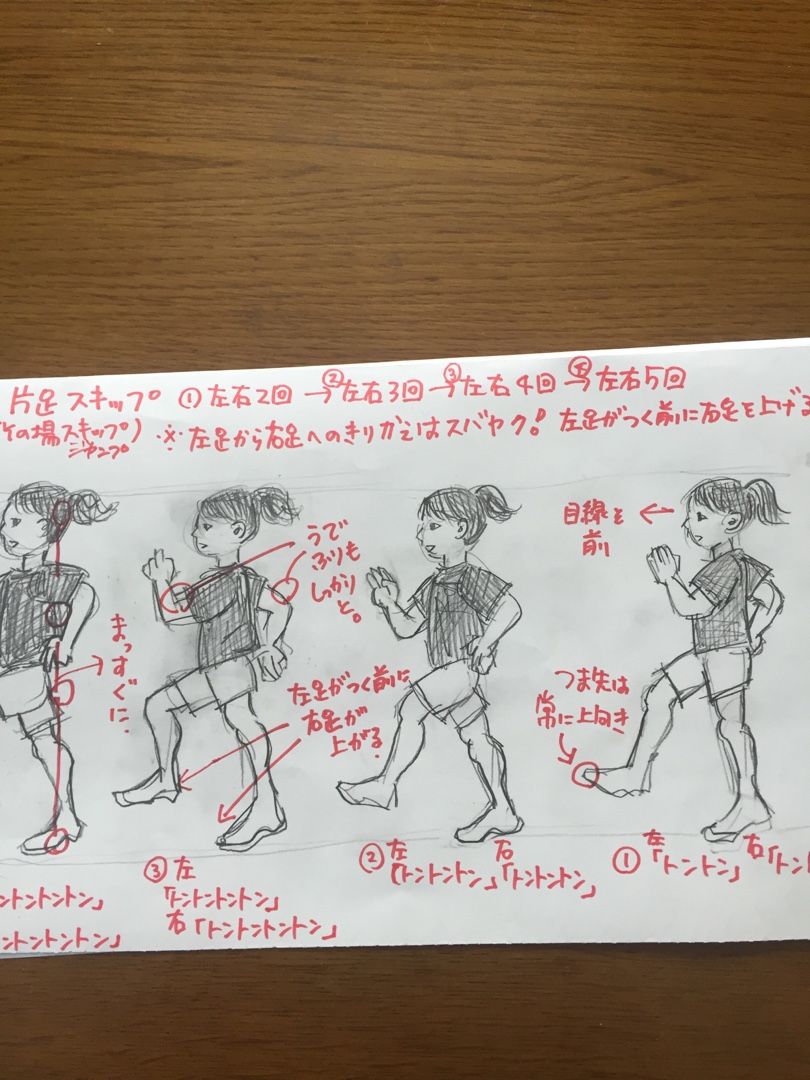 片足スキップ ①左右2回 →②左右3回 →③左右4回 →④左右5回
(その場スキップ)
ジャンプ
※左足から右足へのきりかえはスバヤク! 左足がつく前に右足を上げる
まっすぐに。
うで
ふりも
しっかり
と。
左足がつく前に
右足が
上がる。
目線を
前
つま先は
常に上向き
トントントン」
ントントントン」
③左
「トントントトン」
右「トントントントン」
②左「トントトン」右「トントトン」
①左「トントン」右「トン